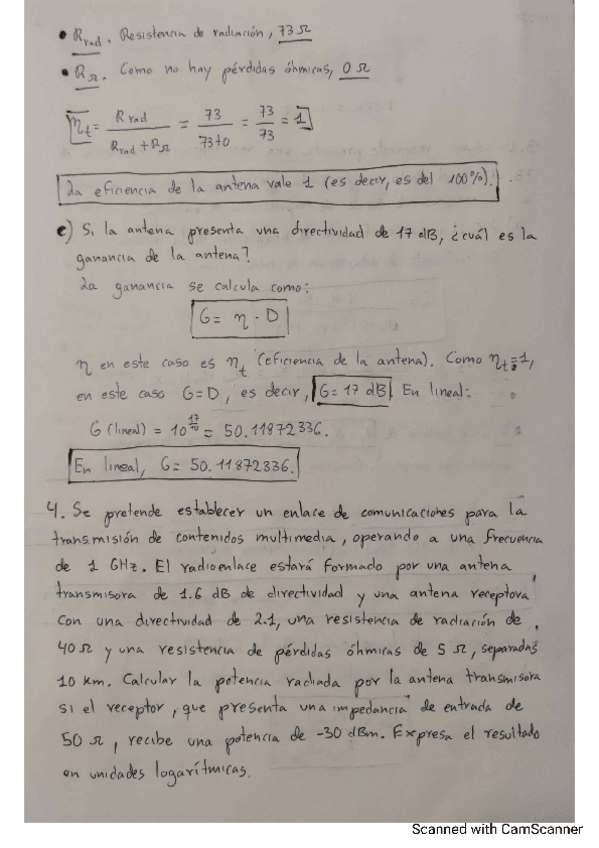 • R_rad. Resistencia de radiación, 73 Ω
• R_Ω. Como no hay pérdidas óhmicas, 0 Ω
η_t = R_rad / (R_rad + R_Ω) = 73 / (73+0) = 73 / 73 = 1
La eficiencia de la antena vale 1 (es decir, es del 100%).
c) Si la antena presenta una directividad de 17 dB, ¿cuál es la
ganancia de la antena?
La ganancia se calcula como:
G = η · D
η en este caso es η_t (eficiencia de la antena). Como η_t = 1,
en este caso G=D, es decir, G= 17 dB. En lineal:
G (lineal) = 10^(17/10) = 50.11872336.
En lineal, G= 50.11872336.
4. Se pretende establecer un enlace de comunicaciones para la
transmisión de contenidos multimedia, operando a una frecuencia
de 1 GHz. El radioenlace estará formado por una antena
transmisora de 1.6 dB de directividad y una antena receptora
con una directividad de 2.1, una resistencia de radiación de
40 Ω y una resistencia de pérdidas óhmicas de 5 Ω, separadas
10 km. Calcular la potencia radiada por la antena transmisora
si el receptor, que presenta una impedancia de entrada de
50 Ω, recibe una potencia de -30 dBm. Expresa el resultado
en unidades logarítmicas.
Scanned with CamScanner